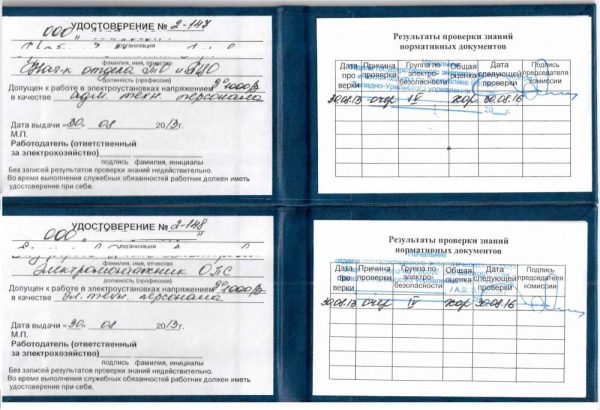 УДОСТОВЕРЕНИЕ № 2-147
ООО
организация
фамилия, имя, отчество
отдела
должность (профессия)
Допущен к работе в электроустановках напряжением до 1000 В
в качестве адм. техн. персонала
Дата выдачи «30» 08 2013г.
М.П.
Работодатель (ответственный
за электрохозяйство)
подпись фамилия, инициалы
Без записей результатов проверки знаний недействительно.
Во время выполнения служебных обязанностей работник должен иметь
удостоверение при себе.
Результаты проверки знаний
нормативных документов
Дата проверки Причина проверки Группа по электробезопасности Общая оценка Дата следующей проверки Подпись председателя комиссии
30.08.13 очер IV хор 30.08.16
УДОСТОВЕРЕНИЕ № 2-148
ООО
организация
фамилия, имя, отчество
Электромонтажник ОПС
должность (профессия)
Допущен к работе в электроустановках напряжением до 1000 В
в качестве эл. техн. персонала
Дата выдачи «30» 08 2013г.
М.П.
Работодатель (ответственный
за электрохозяйство)
подпись фамилия, инициалы
Без записей результатов проверки знаний недействительно.
Во время выполнения служебных обязанностей работник должен иметь
удостоверение при себе.
Результаты проверки знаний
нормативных документов
Начальник
Дата проверки Причина проверки Группа по электробезопасности Общая оценка Дата следующей проверки Подпись председателя комиссии
30.08.13 очер IV хор 30.08.16